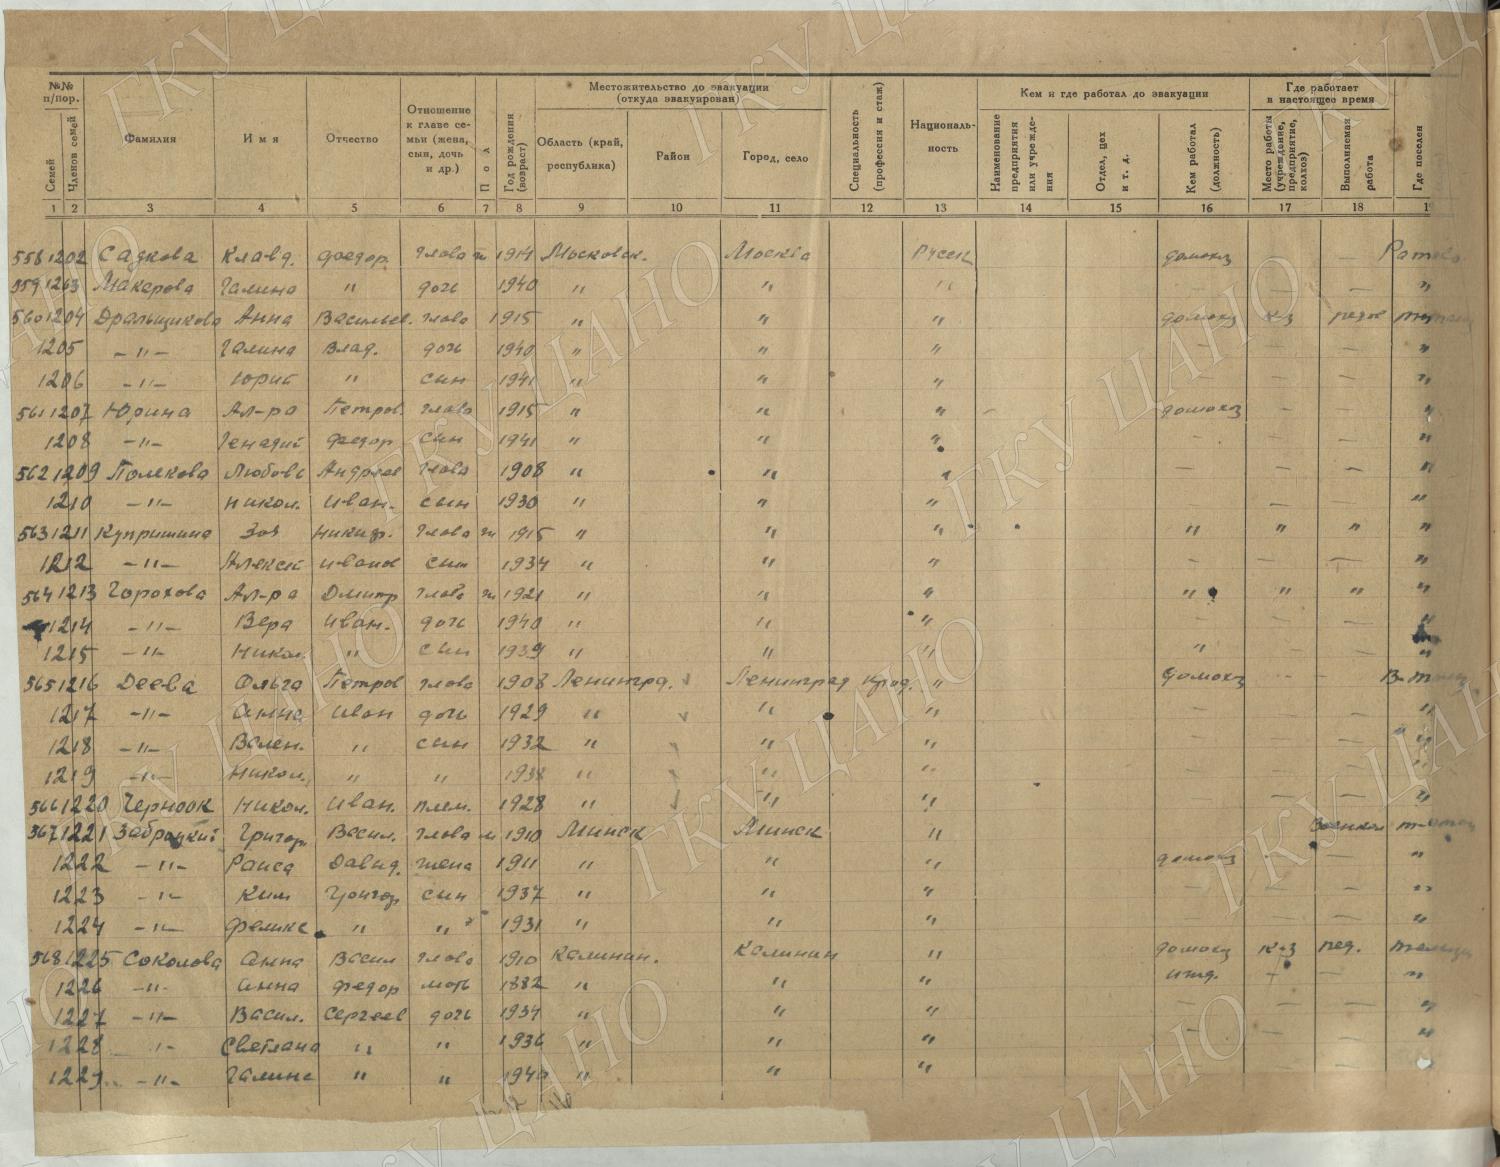 №№ п/пор.
Семей
Членов семей
Фамилия
Имя
Отчество
Отношение к главе семьи (жена, сын, дочь и др.)
Пол
Год рождения (возраст)
Местожительство до эвакуации (откуда эвакуирован)
Область (край, республика)
Район
Город, село
Специальность (профессия и стаж)
Националь-ность
Кем и где работал до эвакуации
Наименование предприятия или учрежде-ния
Отдел, цех и т. д.
Кем работал (должность)
Где работает в настоящее время
Место работы (учреждение, предприятие, колхоз)
Выполняемая работа
Где поселен
1 2 3 4 5 6 7 8 9 10 11 12 13 14 15 16 17 18
558 1202 Садкова Клавд. Федор. глава ж 1914 Московск. Москва Русск домохз —
559 1203 Макарова Галина " дочь 1940 " " " — — — "
560 1204 Дральщикова Анна Васильев. глава 1915 " " " домохз кз
1205 —"— Галина Влад. дочь 1940 " " " — — — "
1206 —"— Юрий " сын 1941 " " " — — "
561 1207 Юрина Ал-ра Петров. глава 1915 " " " домохз — — "
1208 —"— Генадий Федор сын 1941 " " " — — — "
562 1209 Полекова Любовь Андреев глава 1908 " " " — — — "
1210 —"— Никол. Иван. сын 1930 " " " — — "
563 1211 Купришина Зоя Никиф. глава ж 1915 " " " " " " "
1212 —"— Алексей Иванов сын 1934 " " " — — — "
564 1213 Горохова Ал-ра Дмитр глава ж 1921 " " " " " " "
1214 —"— Вера Иван. дочь 1940 " " " — — — "
1215 —"— Никол. " сын 1939 " " " " "
565 1216 Деева Ольга Петров глава 1908 Ленинград. Ленинград " домохз — —
1217 —"— Анна Иван дочь 1929 " " " — — — "
1218 —"— Вален. " сын 1932 " " " — — "
1219 —"— Никол. " " 1938 " " " — — — "
566 1220 Черноок Никол. Иван. плем. 1928 " " " — — "
567 1221 Забродкий Григор. Васил. глава м 1910 Минск Минск "
1222 —"— Раиса Давид. жена 1911 " " " домохз — — "
1223 —"— Ким Григор сын 1937 " " " — — — "
1224 —"— Феликс " " 1931 " " " — — — "
568 1225 Соколова Анна Васил глава 1910 Калинин. Калинин " домохз к-з
1226 —"— Анна Федор мать 1882 " " " ижд. — — "
1227 —"— Васил. Сергеев дочь 1934 " " " — — — "
1228 —"— Светлана " " 1936 " " " — — "
1229 —"— Галина " " 1940 " " "
ГКУ ЦАНО